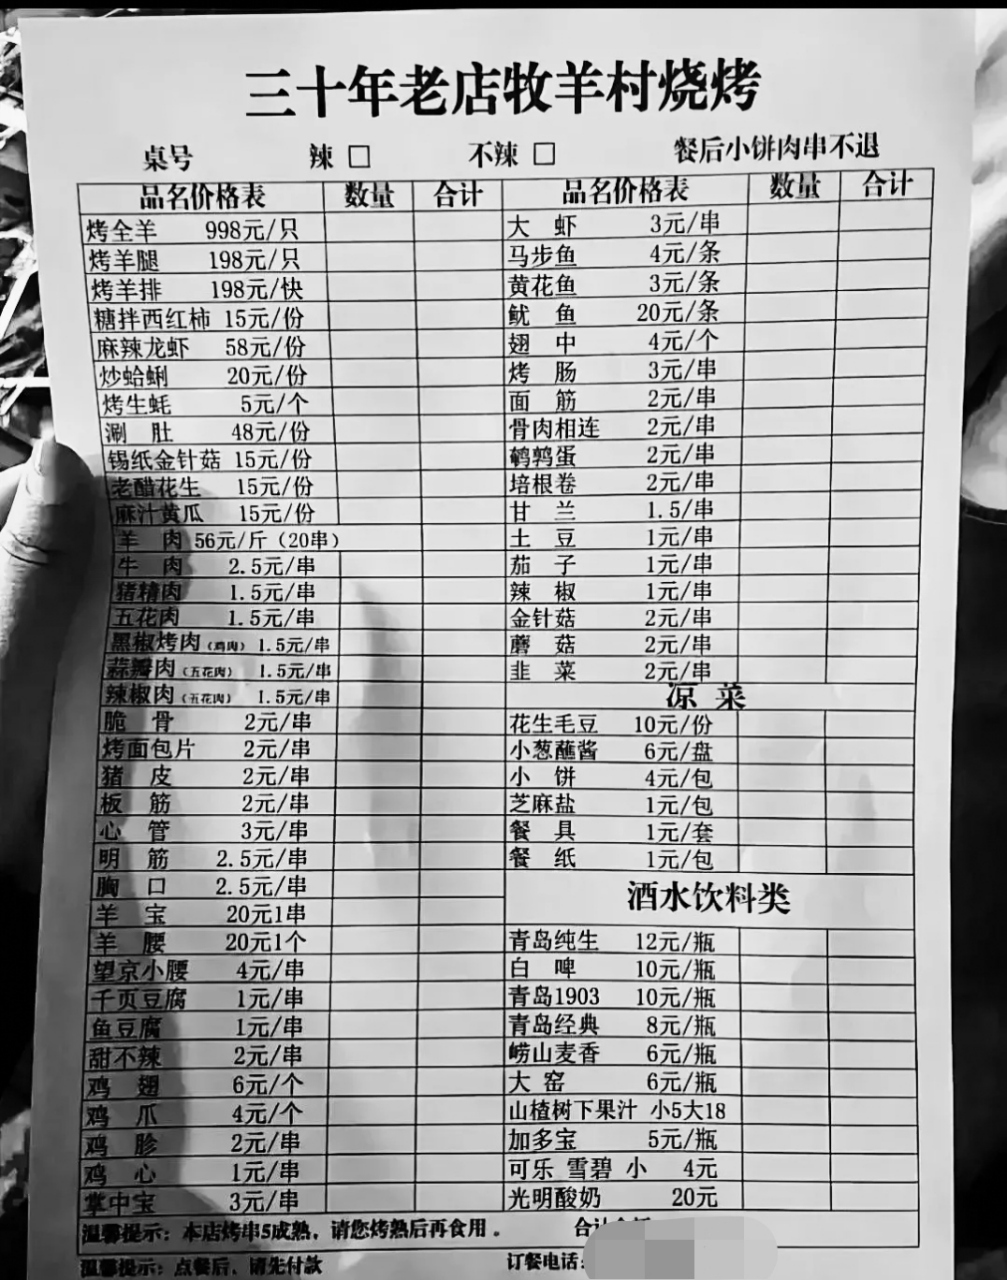 三十年老店牧羊村烧烤
桌号 辣 □ 不辣 □ 餐后小饼肉串不退
品名价格表 数量 合计 品名价格表 数量 合计
烤全羊 998元/只 大虾 3元/串
烤羊腿 198元/只 马步鱼 4元/条
烤羊排 198元/快 黄花鱼 3元/条
糖拌西红柿 15元/份 鱿鱼 20元/条
麻辣龙虾 58元/份 翅中 4元/个
炒蛤蜊 20元/份 烤肠 3元/串
烤生蚝 5元/个 面筋 2元/串
涮肚 48元/份 骨肉相连 2元/串
锡纸金针菇 15元/份 鹌鹑蛋 2元/串
老醋花生 15元/份 培根卷 2元/串
麻汁黄瓜 15元/份 甘兰 1.5/串
羊肉 56元/斤（20串） 土豆 1元/串
牛肉 2.5元/串 茄子 1元/串
猪精肉 1.5元/串 辣椒 1元/串
五花肉 1.5元/串 金针菇 2元/串
黑椒烤肉（鸡肉） 1.5元/串 蘑菇 2元/串
蒜瓣肉（五花肉） 1.5元/串 韭菜 2元/串
辣椒肉（五花肉） 1.5元/串 凉菜
脆骨 2元/串 花生毛豆 10元/份
烤面包片 2元/串 小葱蘸酱 6元/盘
猪皮 2元/串 小饼 4元/包
板筋 2元/串 芝麻盐 1元/包
心管 3元/串 餐具 1元/套
明筋 2.5元/串 餐纸 1元/包
胸口 2.5元/串 酒水饮料类
羊宝 20元1串
羊腰 20元1个 青岛纯生 12元/瓶
望京小腰 4元/串 白啤 10元/瓶
千页豆腐 1元/串 青岛1903 10元/瓶
鱼豆腐 1元/串 青岛经典 8元/瓶
甜不辣 2元/串 崂山麦香 6元/瓶
鸡翅 6元/个 大窑 6元/瓶
鸡爪 4元/个 山楂树下果汁 小5大18
鸡胗 2元/串 加多宝 5元/瓶
鸡心 1元/串 可乐 雪碧 小 4元
掌中宝 3元/串 光明酸奶 20元
温馨提示：本店烤串5成熟，请您烤熟后再食用。 合计
温馨提示：点餐后，请先付款 订餐电话：